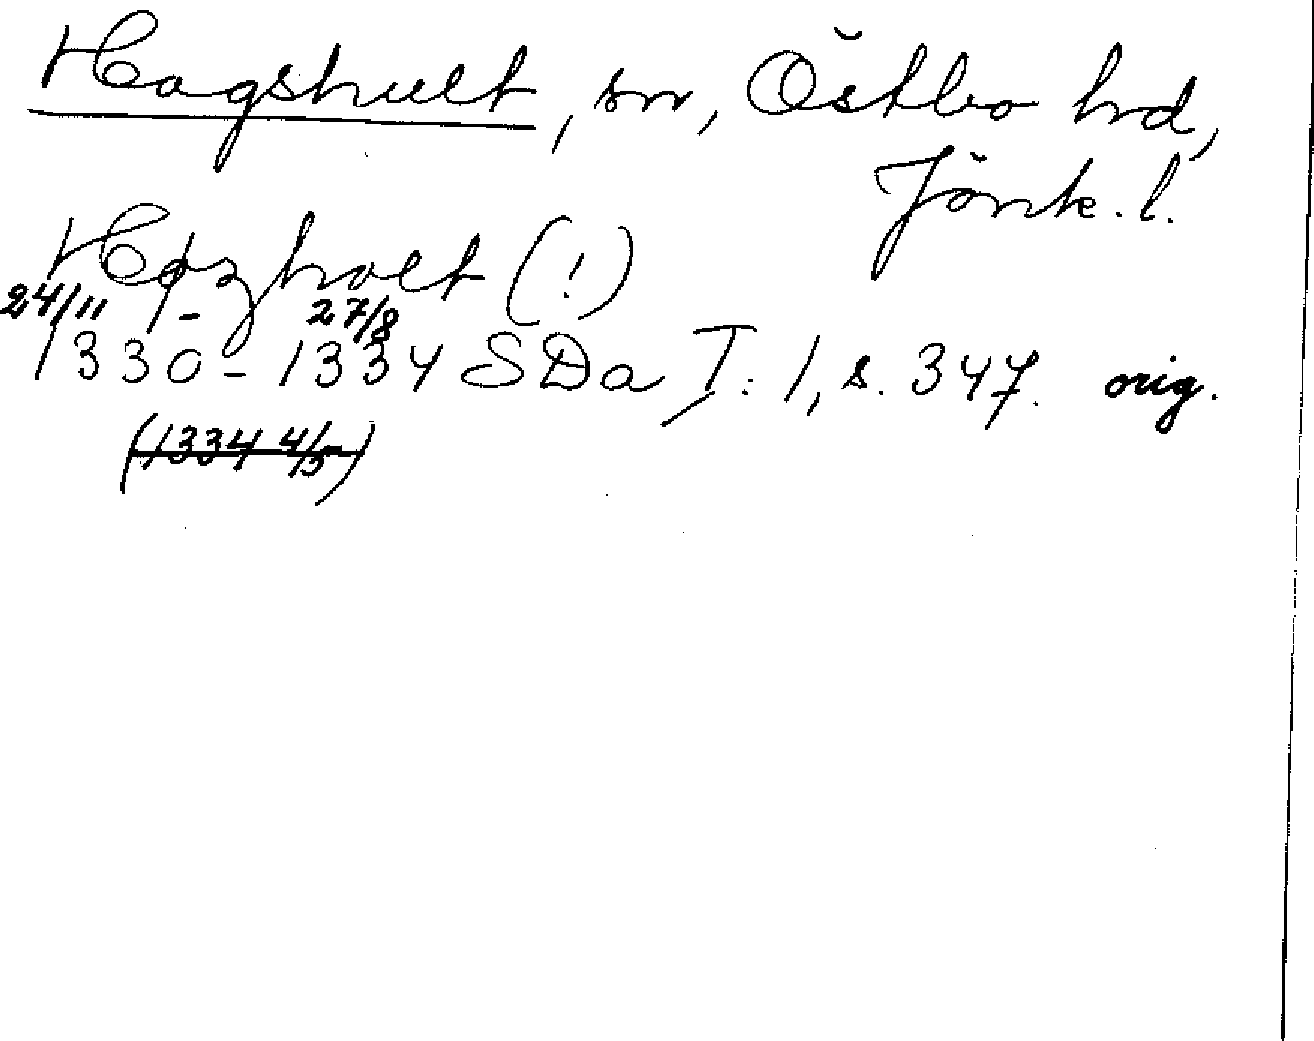 Hagshult, sn, Östbo hd,
Jönk. l.
Høzholt (!)
24/11 - 27/8
1330-1334 SDa I:1, s. 347. orig.
(1334 4/5)